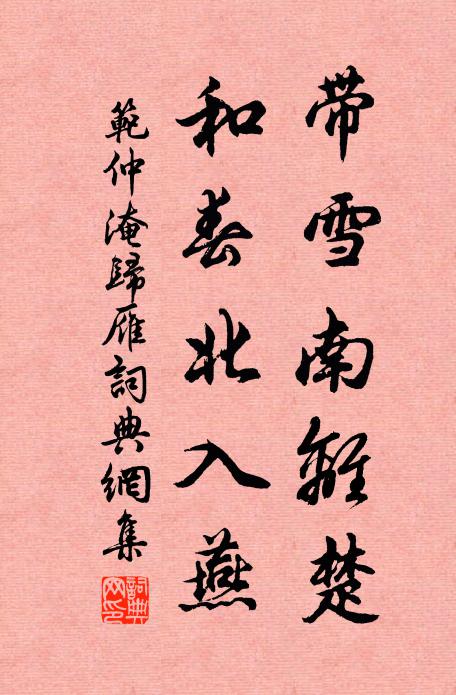 带雪南離楚
和春北入燕
範仲淹歸雁詞典網集
詞典
网印